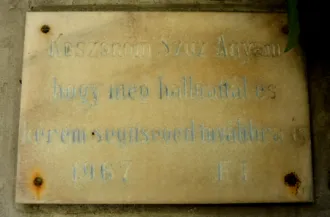 Köszönöm Szűz Anyám
hogy meghallgattál és
kérem segítségedet továbbra is
1967 F J